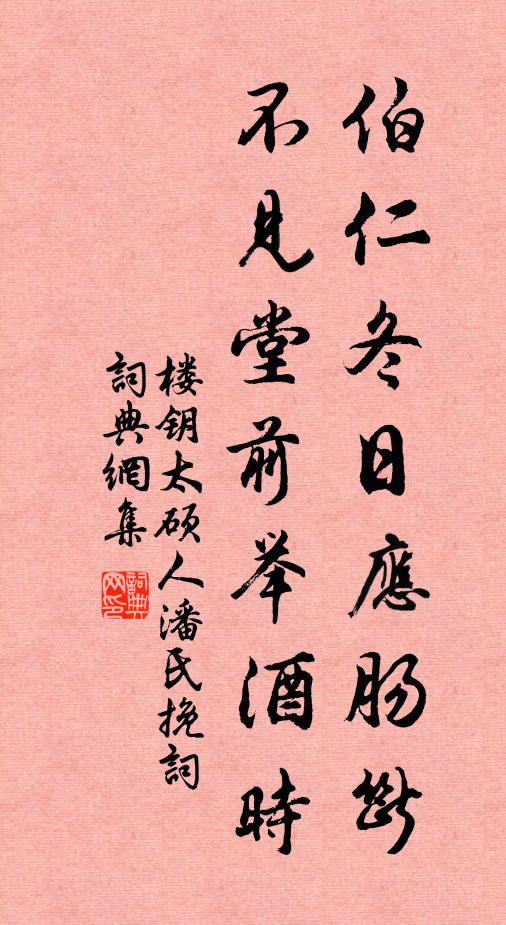 伯仁冬日應肠斷
不見堂前举酒時
楼钥太硕人潘氏挽詞
詞典網集
詞典网印